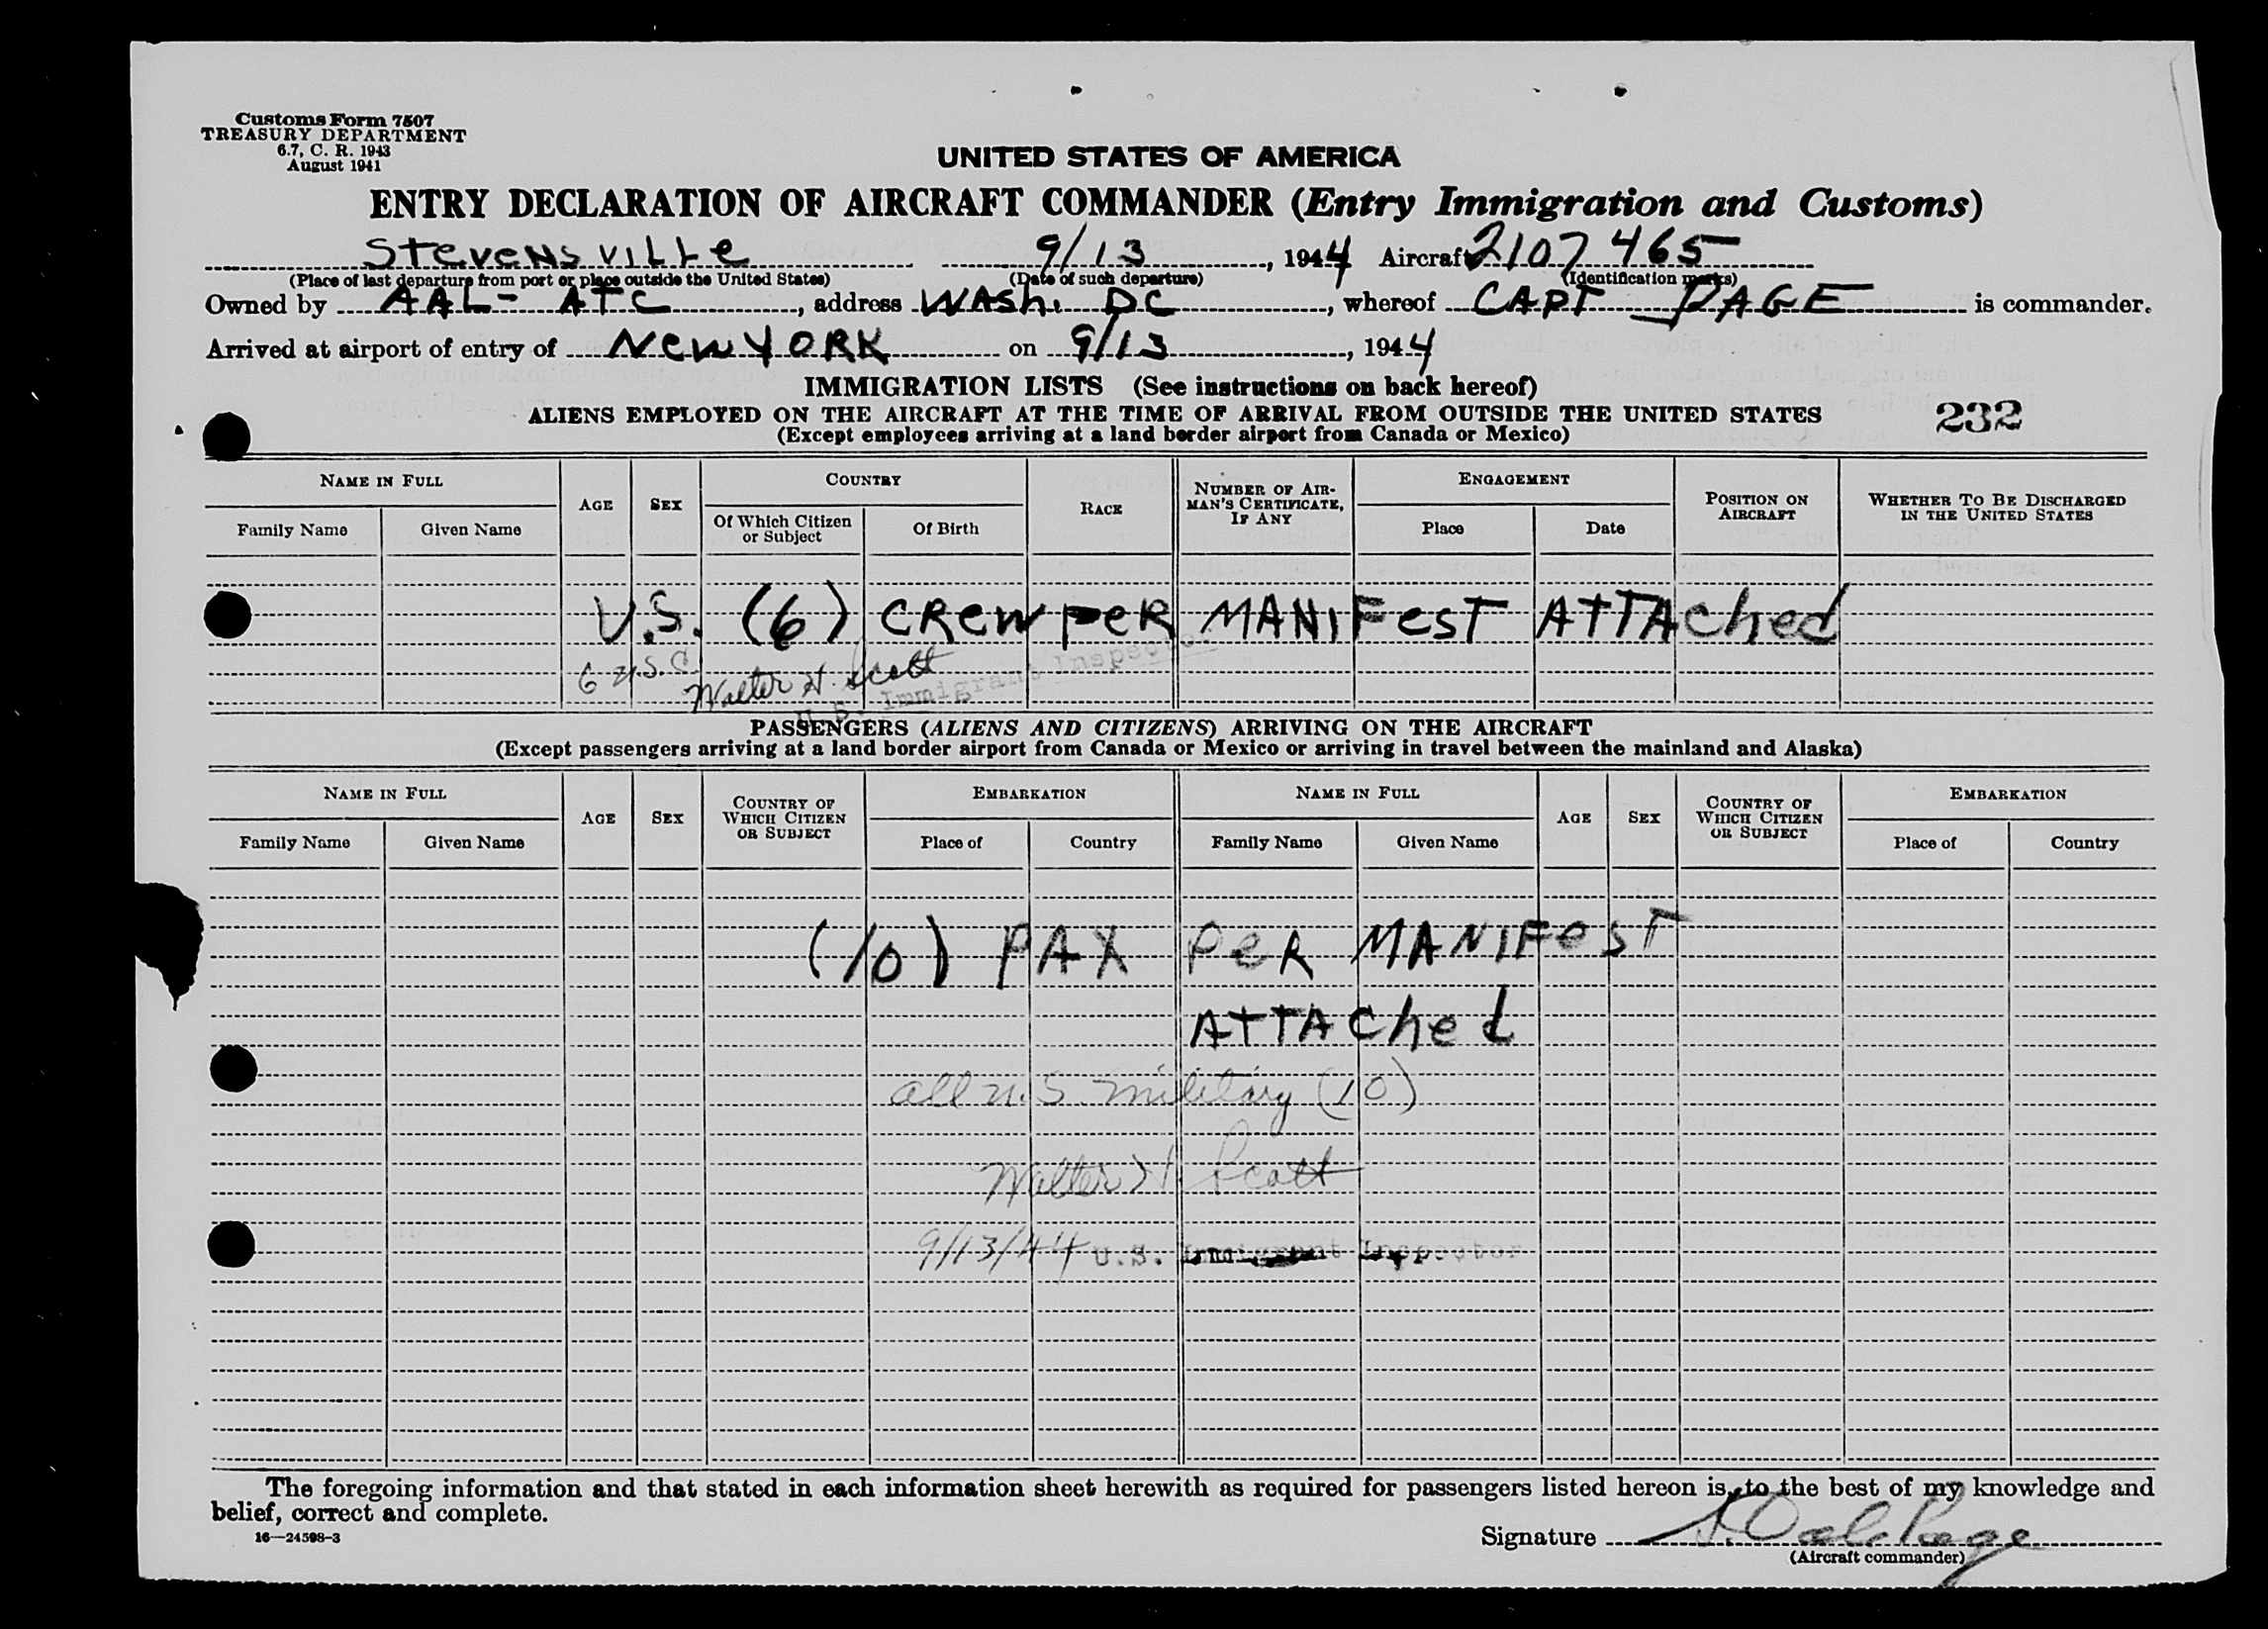 Customs Form 7507
TREASURY DEPARTMENT
6.7, C. R. 1943
August 1941
UNITED STATES OF AMERICA
ENTRY DECLARATION OF AIRCRAFT COMMANDER (Entry Immigration and Customs)
Stevensville 9/13, 1944 Aircraft 2107465
(Place of last departure from port or place outside the United States) (Date of such departure) (Identification marks)
Owned by AAL - ATC, address WASH. DC, whereof CAPT PAGE is commander.
Arrived at airport of entry of New YORK on 9/13, 1944
IMMIGRATION LISTS (See instructions on back hereof)
ALIENS EMPLOYED ON THE AIRCRAFT AT THE TIME OF ARRIVAL FROM OUTSIDE THE UNITED STATES 232
(Except employees arriving at a land border airport from Canada or Mexico)
NAME IN FULL AGE SEX COUNTRY RACE NUMBER OF AIRMAN'S CERTIFICATE, IF ANY ENGAGEMENT POSITION ON AIRCRAFT WHETHER TO BE DISCHARGED IN THE UNITED STATES
Family Name Given Name Of Which Citizen or Subject Of Birth Place Date
U.S. (6) CREW PER MANIFEST ATTACHED
6 U.S.C. Walter H. Scott
U.S. Immigrant Inspector
PASSENGERS (ALIENS AND CITIZENS) ARRIVING ON THE AIRCRAFT
(Except passengers arriving at a land border airport from Canada or Mexico or arriving in travel between the mainland and Alaska)
NAME IN FULL AGE SEX COUNTRY OF WHICH CITIZEN OR SUBJECT EMBARKATION NAME IN FULL AGE SEX COUNTRY OF WHICH CITIZEN OR SUBJECT EMBARKATION
Family Name Given Name Place of Country Family Name Given Name Place of Country
(10) PAX PER MANIFEST
ATTACHED
all U.S. military (10)
Walter H. Scott
9/13/44 U.S. Immigrant Inspector
The foregoing information and that stated in each information sheet herewith as required for passengers listed hereon is, to the best of my knowledge and
belief, correct and complete.
16—24598-3
Signature Page
(Aircraft commander)